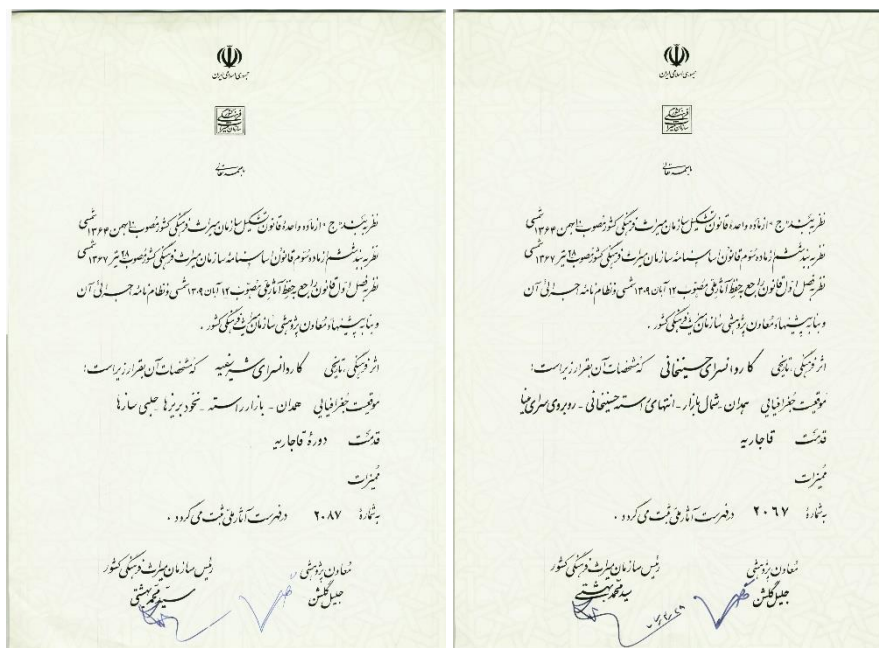 جمهوری اسلامی ایران
سازمان میراث فرهنگی کشور
باسمه تعالی
نظر به بند «ج» از ماده واحدهٔ قانون تشکیل سازمان میراث فرهنگی کشور مصوب بهمن ۱۳۶۴ شمسی
نظر به بند ششم از ماده سوم قانون اساسنامهٔ سازمان میراث فرهنگی کشور مصوب ۲۸ تیر ۱۳۶۷ شمسی
نظر به فصل اول قانون راجع به حفظ آثار ملی مصوب ۱۲ آبان ۱۳۰۹ شمسی و نظامنامهٔ اجرائی آن
و بنا به پیشنهاد معاون پژوهشی سازمان میراث فرهنگی کشور.
اثر فرهنگی، تاریخی کاروانسرای حسینخانی که مشخصات آن بقرار زیر است:
موقعیت جغرافیایی همدان - شمال بازار - انتهای راسته حسینخانی - روبروی سرای مینا
قدمت قاجاریه
ممیزات
به شمارهٔ ۲۰۶۷ در فهرست آثار ملی ثبت می گردد.
معاون پژوهشی رئیس سازمان میراث فرهنگی کشور
جلیل گلشن سید محمد بهشتی
جمهوری اسلامی ایران
سازمان میراث فرهنگی کشور
باسمه تعالی
نظر به بند «ج» از ماده واحدهٔ قانون تشکیل سازمان میراث فرهنگی کشور مصوب بهمن ۱۳۶۴ شمسی
نظر به بند ششم از ماده سوم قانون اساسنامهٔ سازمان میراث فرهنگی کشور مصوب ۲۸ تیر ۱۳۶۷ شمسی
نظر به فصل اول قانون راجع به حفظ آثار ملی مصوب ۱۲ آبان ۱۳۰۹ شمسی و نظامنامهٔ اجرائی آن
و بنا به پیشنهاد معاون پژوهشی سازمان میراث فرهنگی کشور.
اثر فرهنگی، تاریخی کاروانسرای شریفیه که مشخصات آن بقرار زیر است:
موقعیت جغرافیایی همدان - بازار راسته - نخود بریزها - حلبی سازها
قدمت دورهٔ قاجاریه
ممیزات
به شمارهٔ ۲۰۸۷ در فهرست آثار ملی ثبت می گردد.
معاون پژوهشی رئیس سازمان میراث فرهنگی کشور
جلیل گلشن سید محمد بهشتی